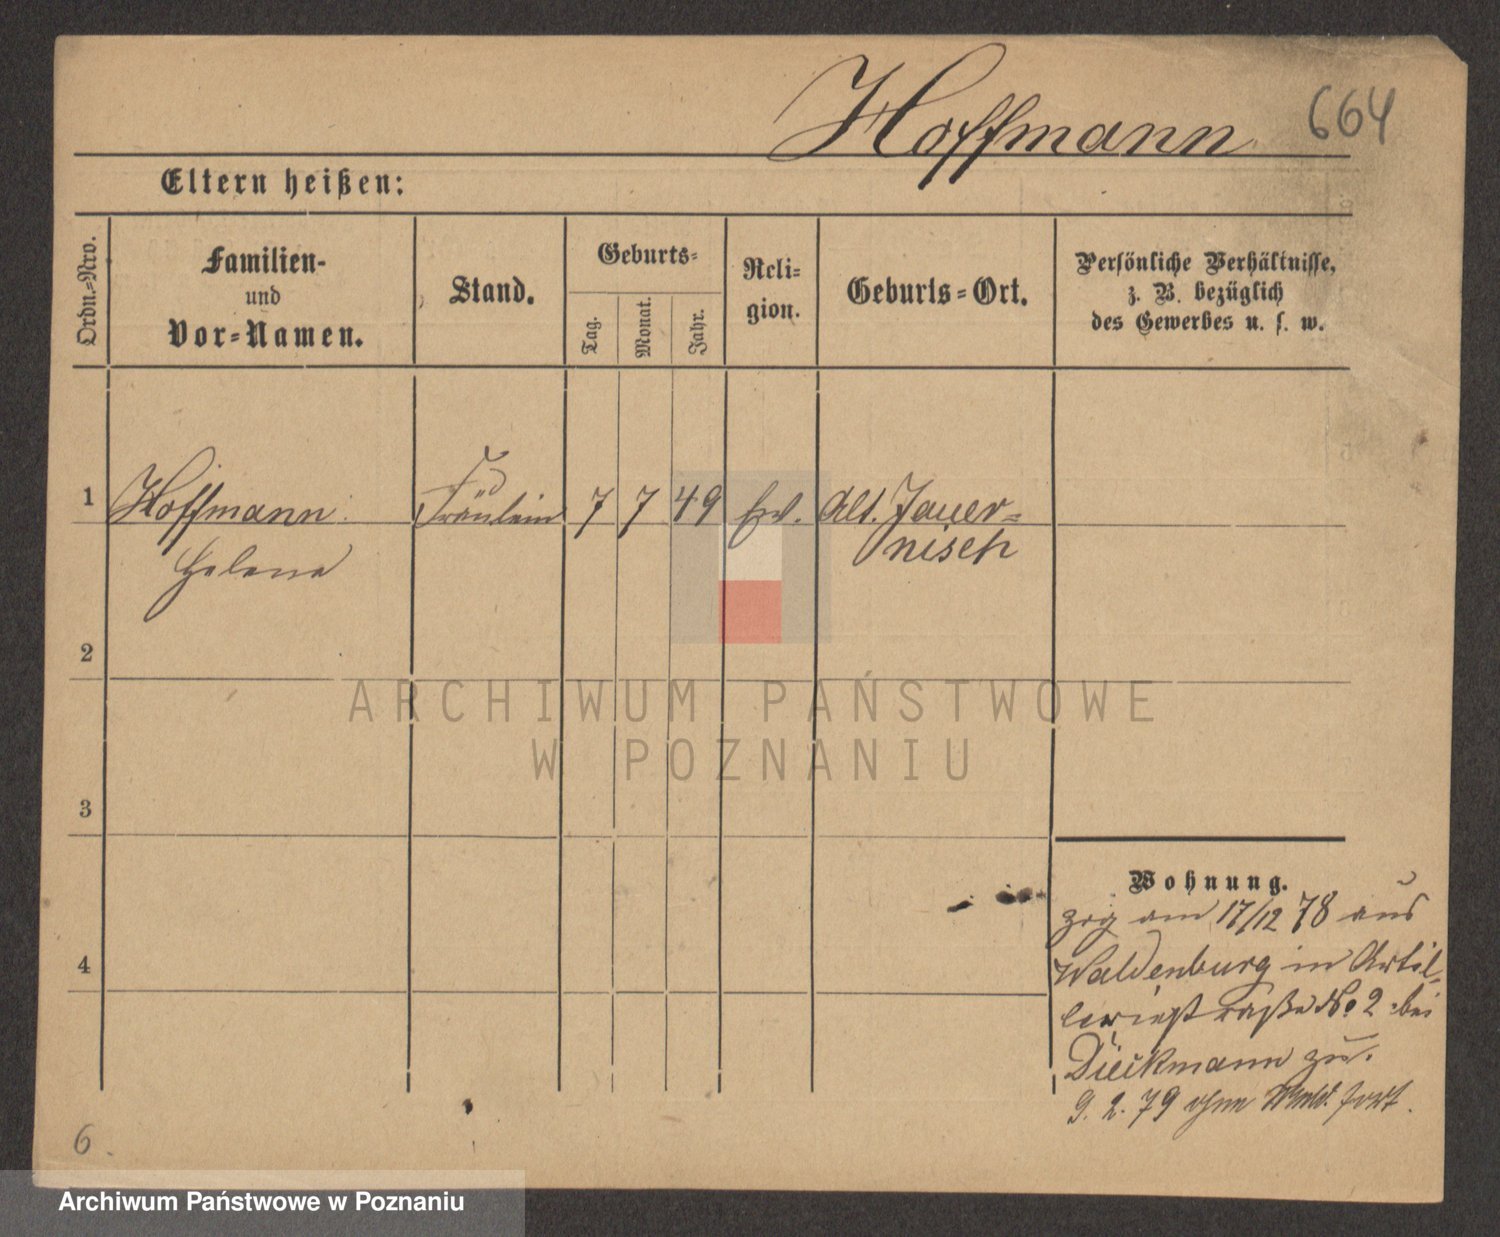 Hoffmann 664
Eltern heißen:
Ordn.-Nro.
Familien-
und
Vor-Namen.
Stand.
Geburts-
Tag.
Monat.
Jahr.
Reli-
gion.
Geburts-Ort.
Persönliche Verhältnisse,
z. B. bezüglich
des Gewerbes u. s. w.
1 Hoffmann Fräulein 7 7 49 Alt. Jauer-
Helene nisch
2
3
4
Wohnung.
zog am 17/12 78 aus
Waldenburg in Artil-
leriestraße No 2 bei
Dieckmann zu.
9. 2. 79 ohne Meld. fort.
6.
ARCHIWUM PAŃSTWOWE
W POZNANIU
Archiwum Państwowe w Poznaniu